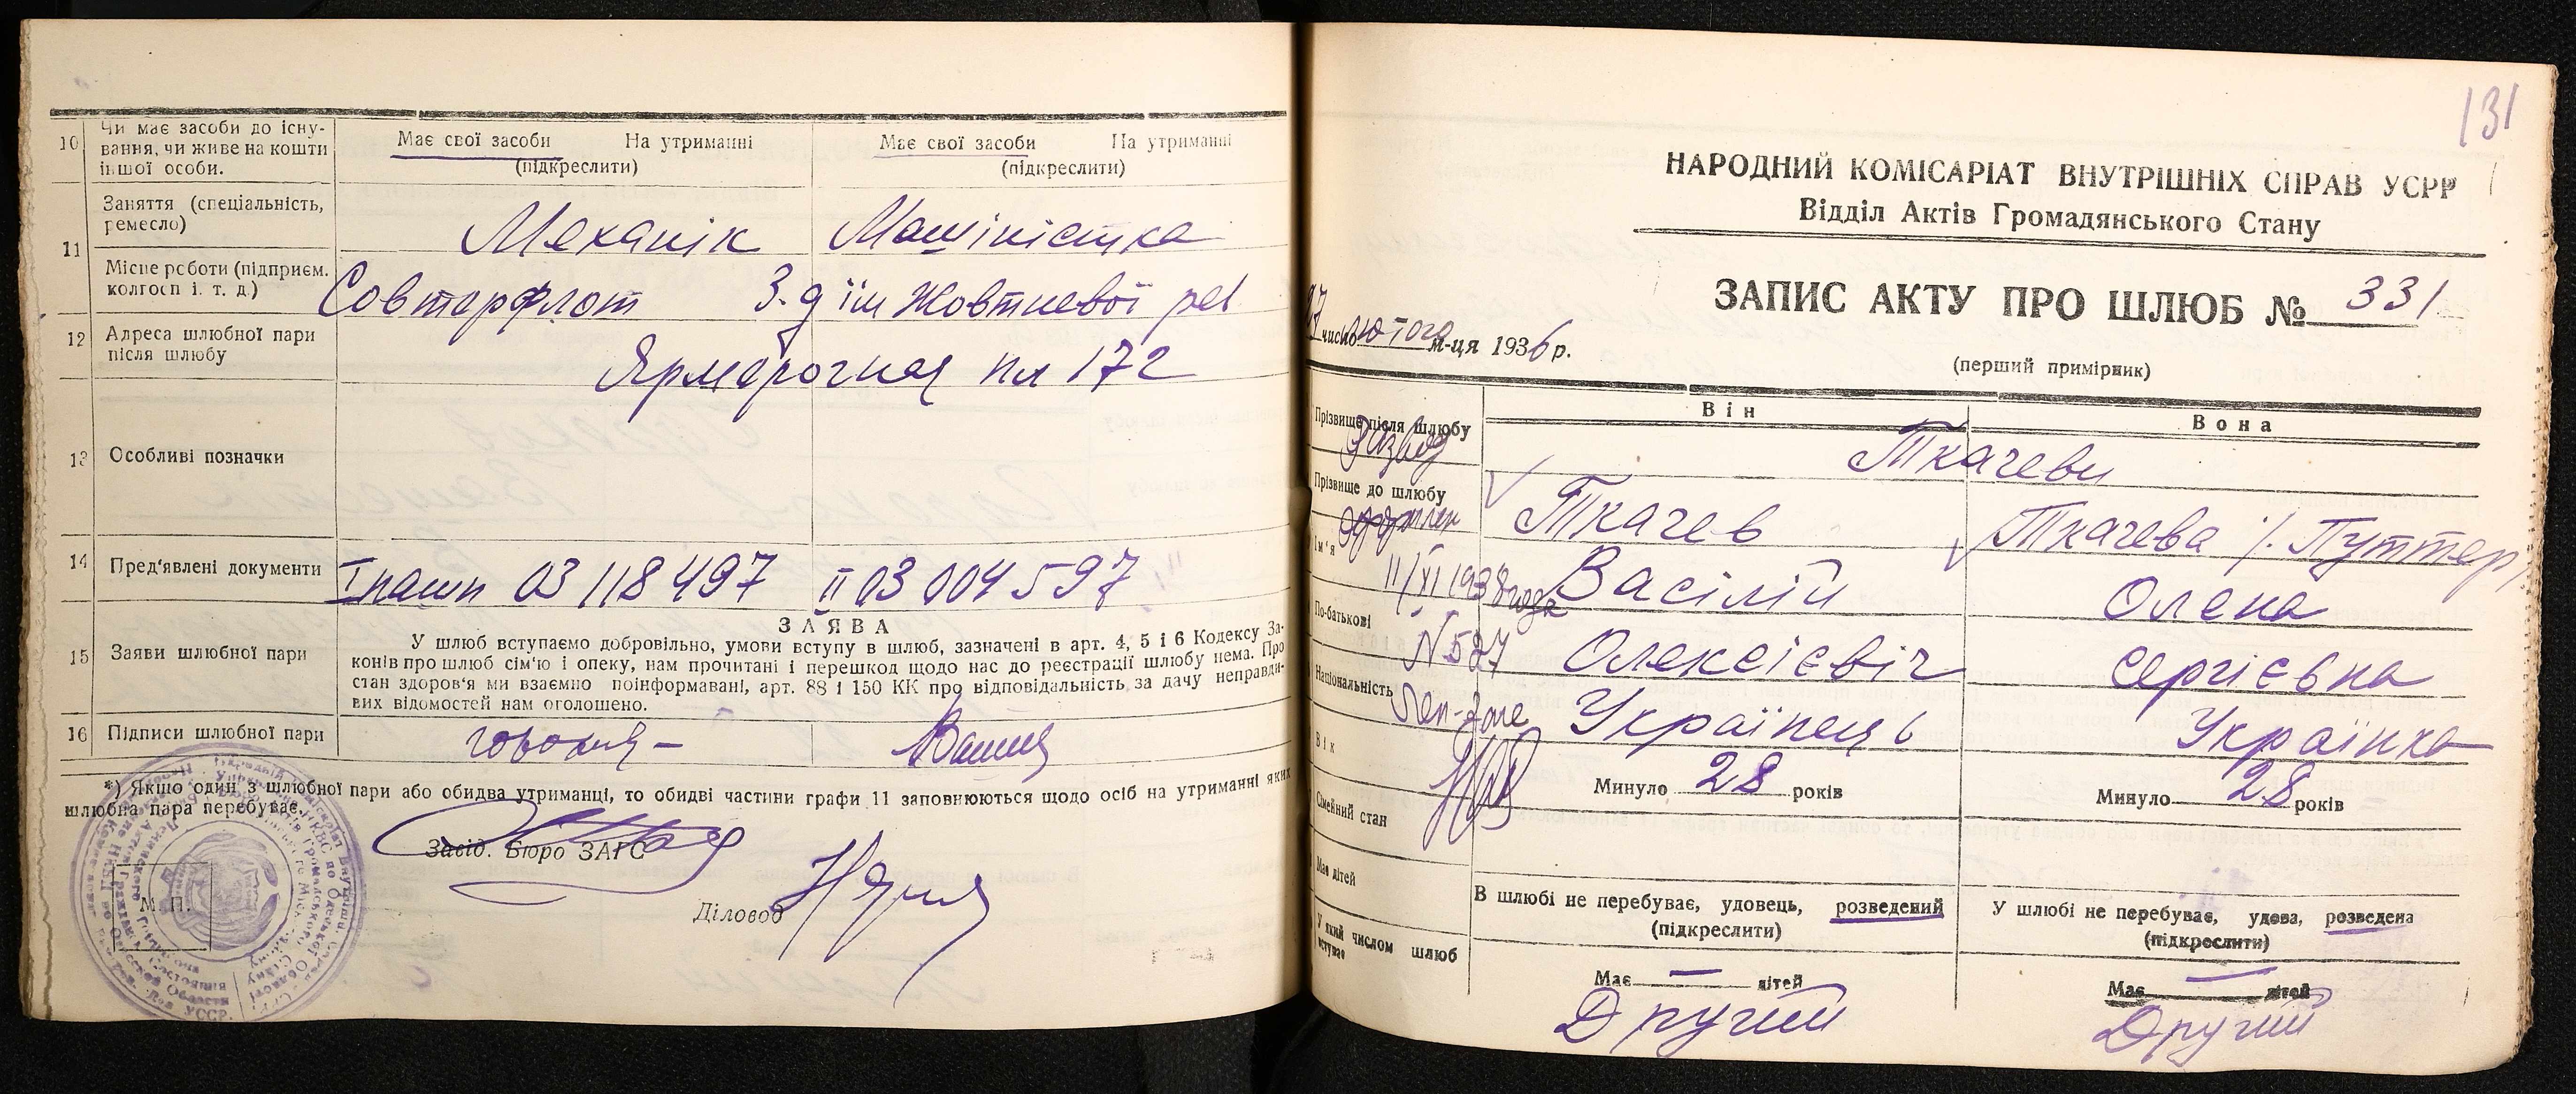 10 Чи має засоби до існу-
вання, чи живе на кошти
іншої особи.
Має свої засоби На утриманні
(підкреслити)
Має свої засоби На утриманні
(підкреслити)
11 Заняття (спеціальність,
ремесло)
Механік Машіністка
Місце роботи (підприєм.
колгосп і. т. д.)
Совторфлот З-д ім Жовтневої рев
12 Адреса шлюбної пари
після шлюбу
Ярмарочная пл 172
13 Особливі позначки
14 Пред'явлені документи I пашп 03 118497 II 03 004597
15 Заяви шлюбної пари
ЗАЯВА
У шлюб вступаємо добровільно, умови вступу в шлюб, зазначені в арт. 4, 5 і 6 Кодексу За-
конів про шлюб сім'ю і опеку, нам прочитані і перешкод щодо нас до реєстрації шлюбу нема. Про
стан здоров'я ми взаємно поінформавані, арт. 88 і 150 КК про відповідальність за дачу неправди-
вих відомостей нам оголошено.
16 Підписи шлюбної пари
*) Якщо один з шлюбної пари або обидва утриманці, то обидві частини графи 11 заповнюються щодо осіб на утриманні яких
шлюбна пара перебуває.
Завід. Бюро ЗАГС
М. П.
Діловод
131
НАРОДНИЙ КОМІСАРІАТ ВНУТРІШНІХ СПРАВ УСРР
Відділ Актів Громадянського Стану
ЗАПИС АКТУ ПРО ШЛЮБ № 331
27 числа лютого м-ця 1936 р.
(перший примірник)
Він Вона
Прізвище після шлюбу Ткачеви
Развод
Прізвище до шлюбу Ткачев Ткачева /. Путтер/
оформлен
Ім'я Васілій Олена
11/XI 1938 года
По-батькові Олексієвіч Сергієвна
N 527
Національність Українець Українка
Вік Минуло 28 років Минуло 28 років
Сімейний стан
В шлюбі не перебуває, удовець, розведений
(підкреслити)
У шлюбі не перебуває, удова, розведена
(підкреслити)
Має дітей
Має — дітей Має — дітей
У який числом шлюб
вступає
Другий Другий